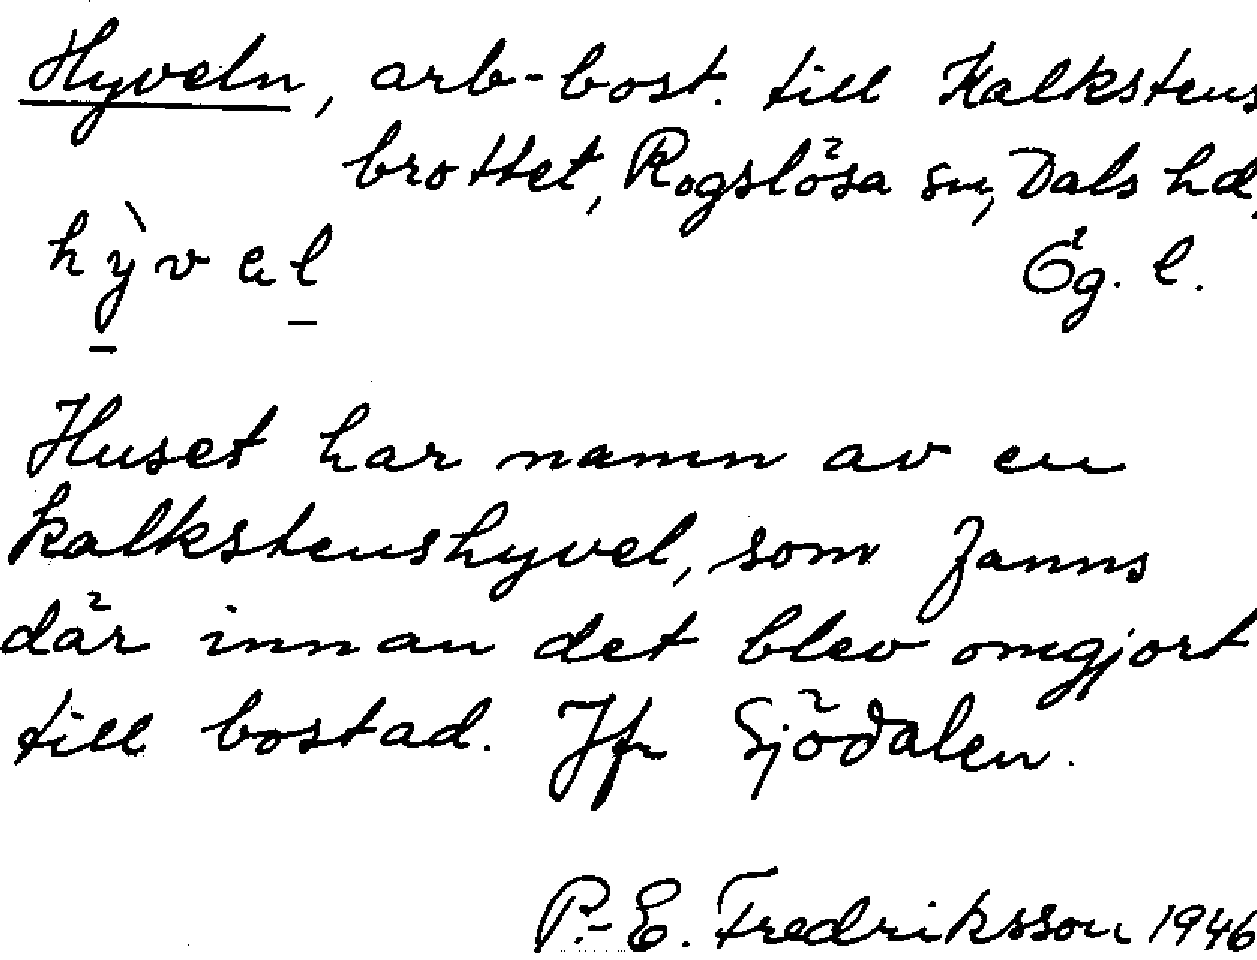 Hyveln, arb-bost. till Kalkstens
brottet, Rogslösa sn, Dals hd,
hỳvəl Ög. l.
Huset har namn av en
kalkstenshyvel, som fanns
där innan det blev omgjort
till bostad. Jfr Sjödalen.
P.-E. Fredriksson 1946